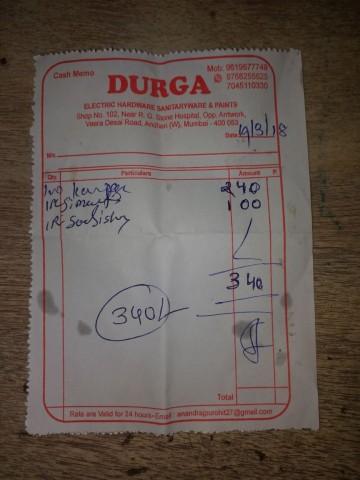 Cash Memo
Mob: 9619677748
9768255625
7045110330
DURGA
ELECTRIC HARDWARE SANITARYWARE & PAINTS
Shop No. 102, Near R. G. Stone Hospital, Opp. Amtwork,
Veera Desai Road, Andheri (W), Mumbai - 400 053
Date 19/3/18
M/s.
Qty. Particulars Amount P.
240
100
340
340/-
Total
Rate are Valid for 24 hours- Email : anandrajpurohit27@gmail.com